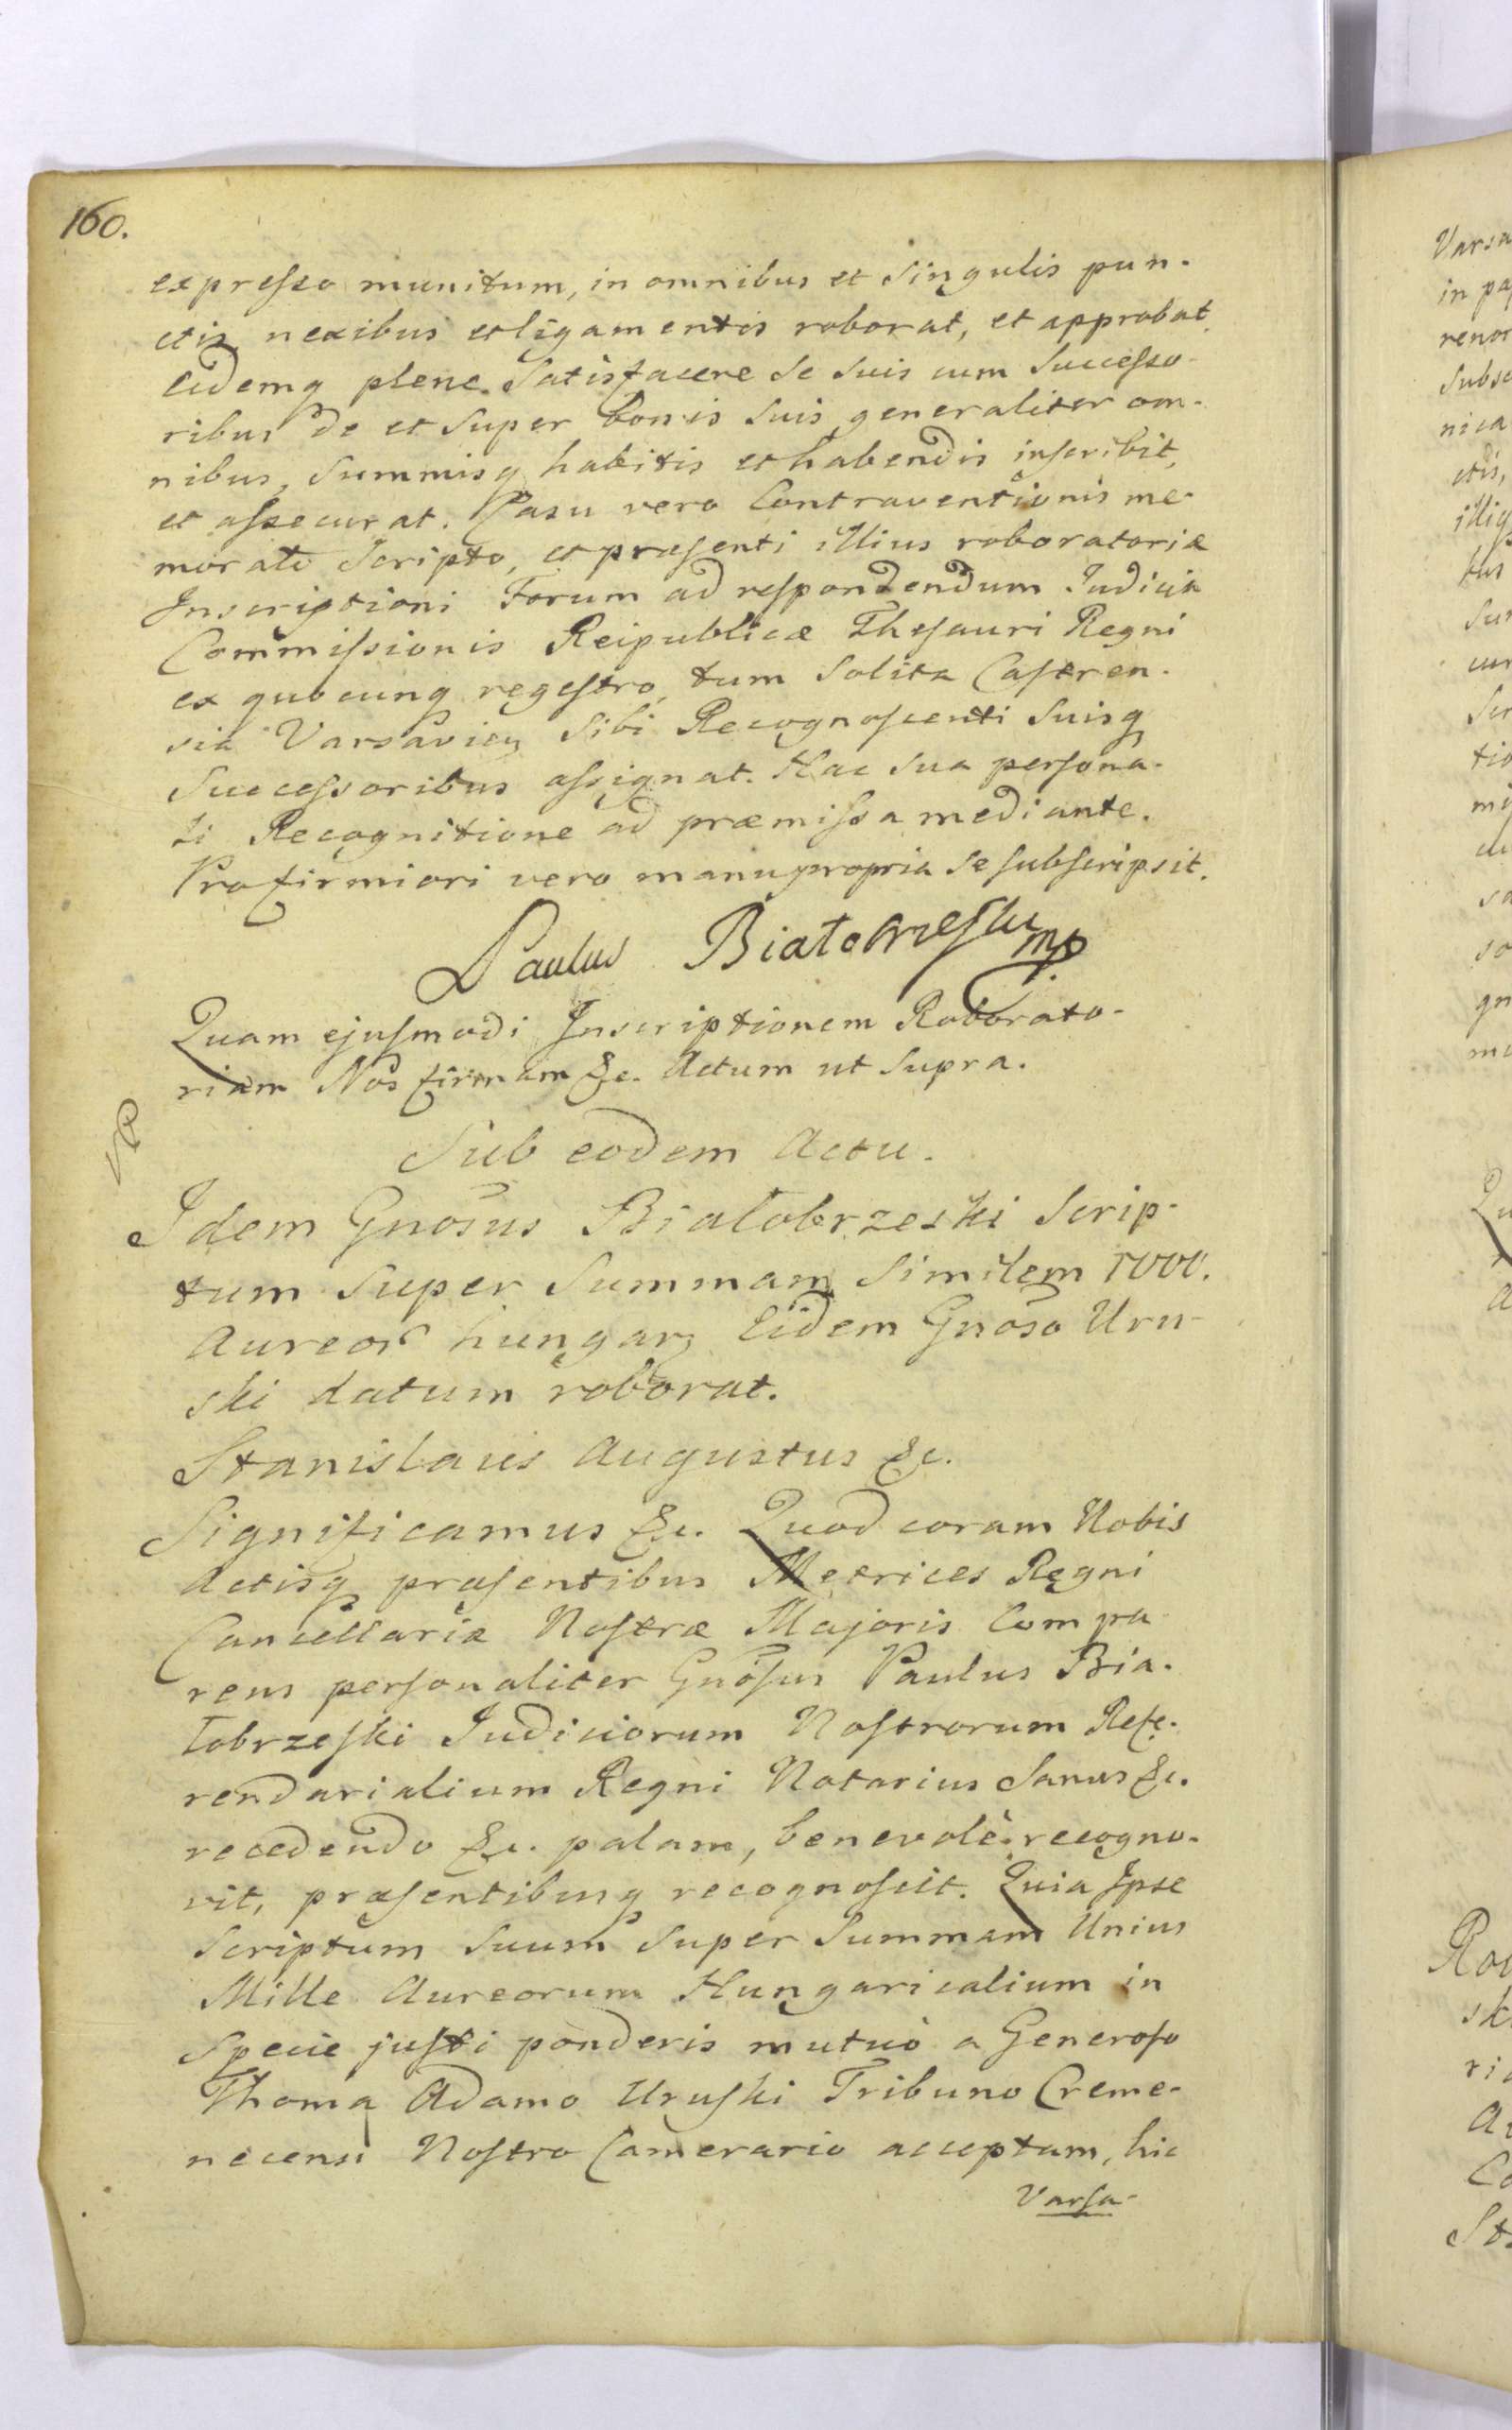 160.
expresso munitum, in omnibus et Singulis pun-
ctis nexibus et ligamentis roborat, et approbat,
Eidemq plene Satisfacere Se Suis cum Successo-
ribus de et Super bonis Suis generaliter om-
nibus, Summisq habitis et habendis inscribit,
et assecurat. Casu vero Contraventionis me-
morato Scripto, et præsenti illius roboratoriæ
Inscriptioni Forum ad respondendum Judicia
Commissionis Reipublicæ Thesauri Regni
ex quocunq regestro, tum Solita Castren-
sia Varsavien Sibi Recognoscenti Suisq
Successoribus assignat. Hac Sua persona-
li Recognitione ad præmissa mediante.
Pro firmiori vero manu propria Se subscripsit.
Paulus Białobrzeski mp
Quam ejusmodi Inscriptionem Roborato-
riam Nos firmam &c. Actum ut Supra.
Sub eodem Actu.
Idem Gnosus Białobrzeski Scrip-
tum Super Summam Similem 1000.
Aureor hungar Eidem Gnoso Uru-
ski datum roborat.
Stanislaus Augustus &c.
Significamus &c. Quod coram Nobis
Actisq præsentibus Metrices Regni
Cancellariæ Nostræ Majoris Compa-
rens personaliter Gnosus Paulus Bia-
łobrzeski Judiciorum Nostrorum Refe-
rendarialium Regni Notarius Sanus &c.
recedendo &c. palam, benevolè recogno-
vit, præsentibusq recognoscit. Quia Ipse
Scriptum Suum Super Summam Unius
Mille Aureorum Hungaricalium in
Specie justi ponderis mutuò a Generoso
Thoma Adamo Uruski Tribuno Creme-
necensi Nostro Camerario acceptam, hic
Varsa-
Varsa
in pa
renor
Subsc
nica
ctis,
tus
cum
tio
mi
gn
Qu
A
Ro
ski
ri
A
Co
St